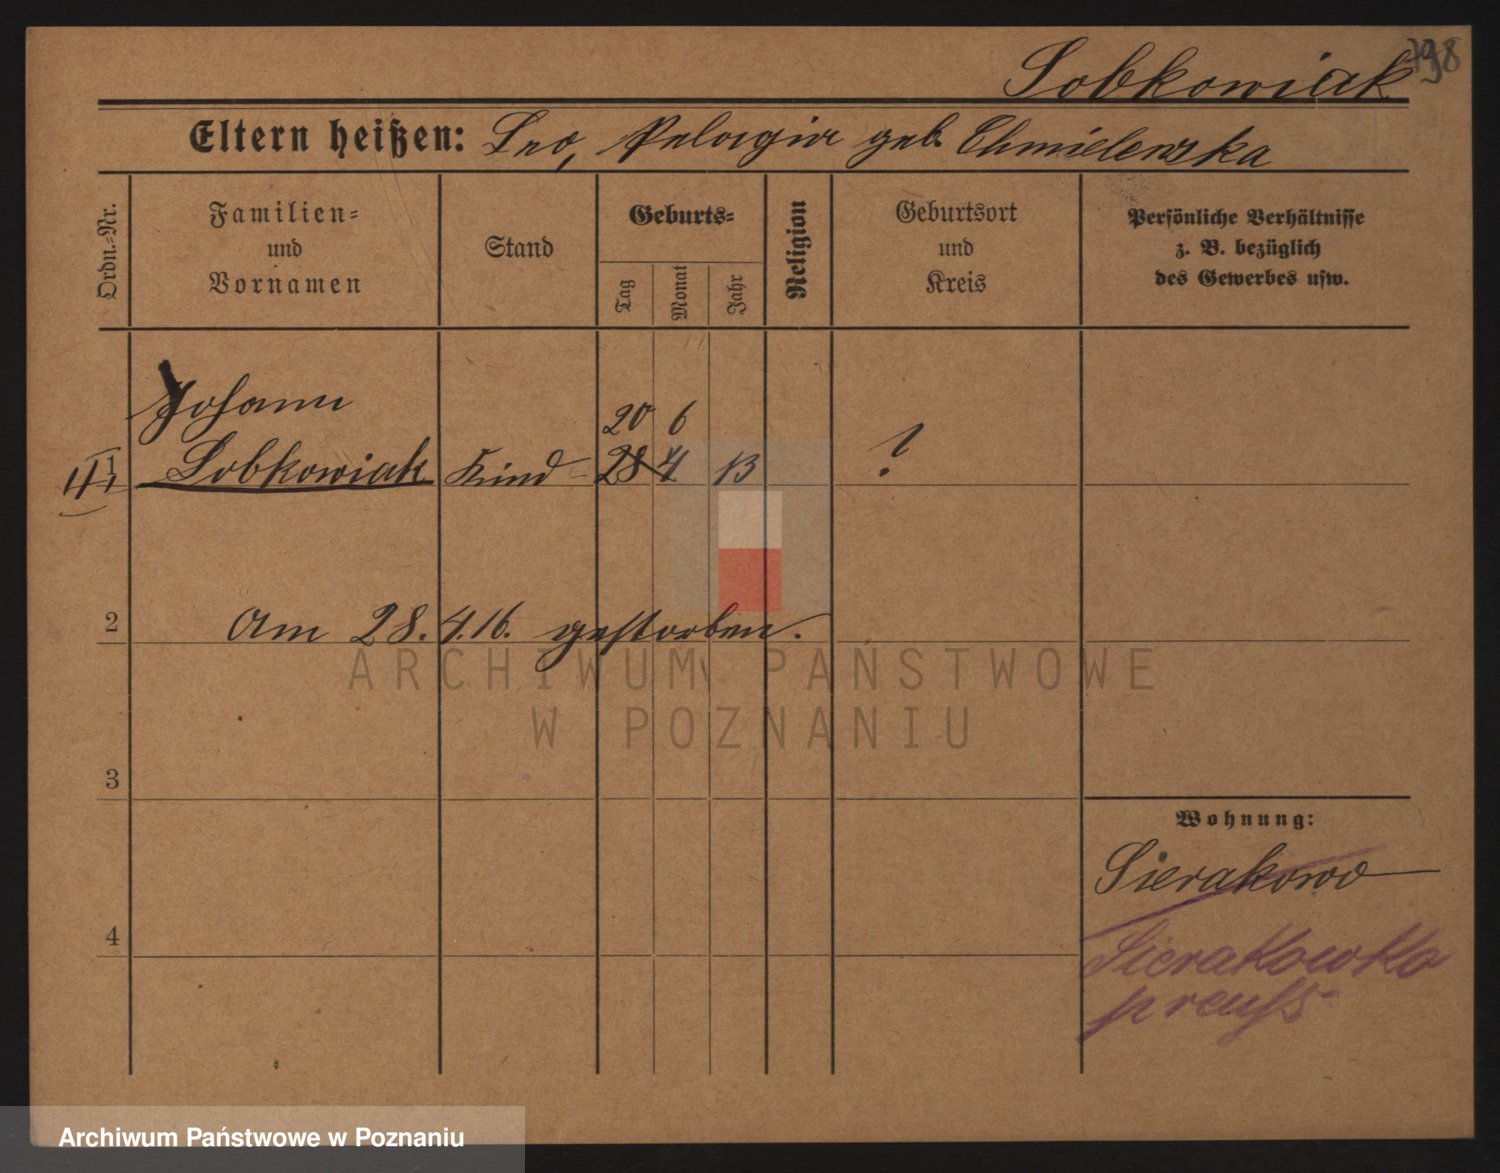 Sobkowiak 798
Eltern heißen: Leo, Pelagia geb. Chmielewska
Ordn.-Nr.
Familien-
und
Vornamen
Stand
Geburts-
Tag
Monat
Jahr
Religion
Geburtsort
und
Kreis
Persönliche Verhältnisse
z. B. bezüglich
des Gewerbes usw.
Johann
20 6
1 Sobkowiak Kind 28 4 13 ?
2 Am 28.4.16. gestorben.
ARCHIWUM PAŃSTWOWE
W POZNANIU
3
Wohnung:
Sierakowo
4
Sierakowko
preuß
Archiwum Państwowe w Poznaniu